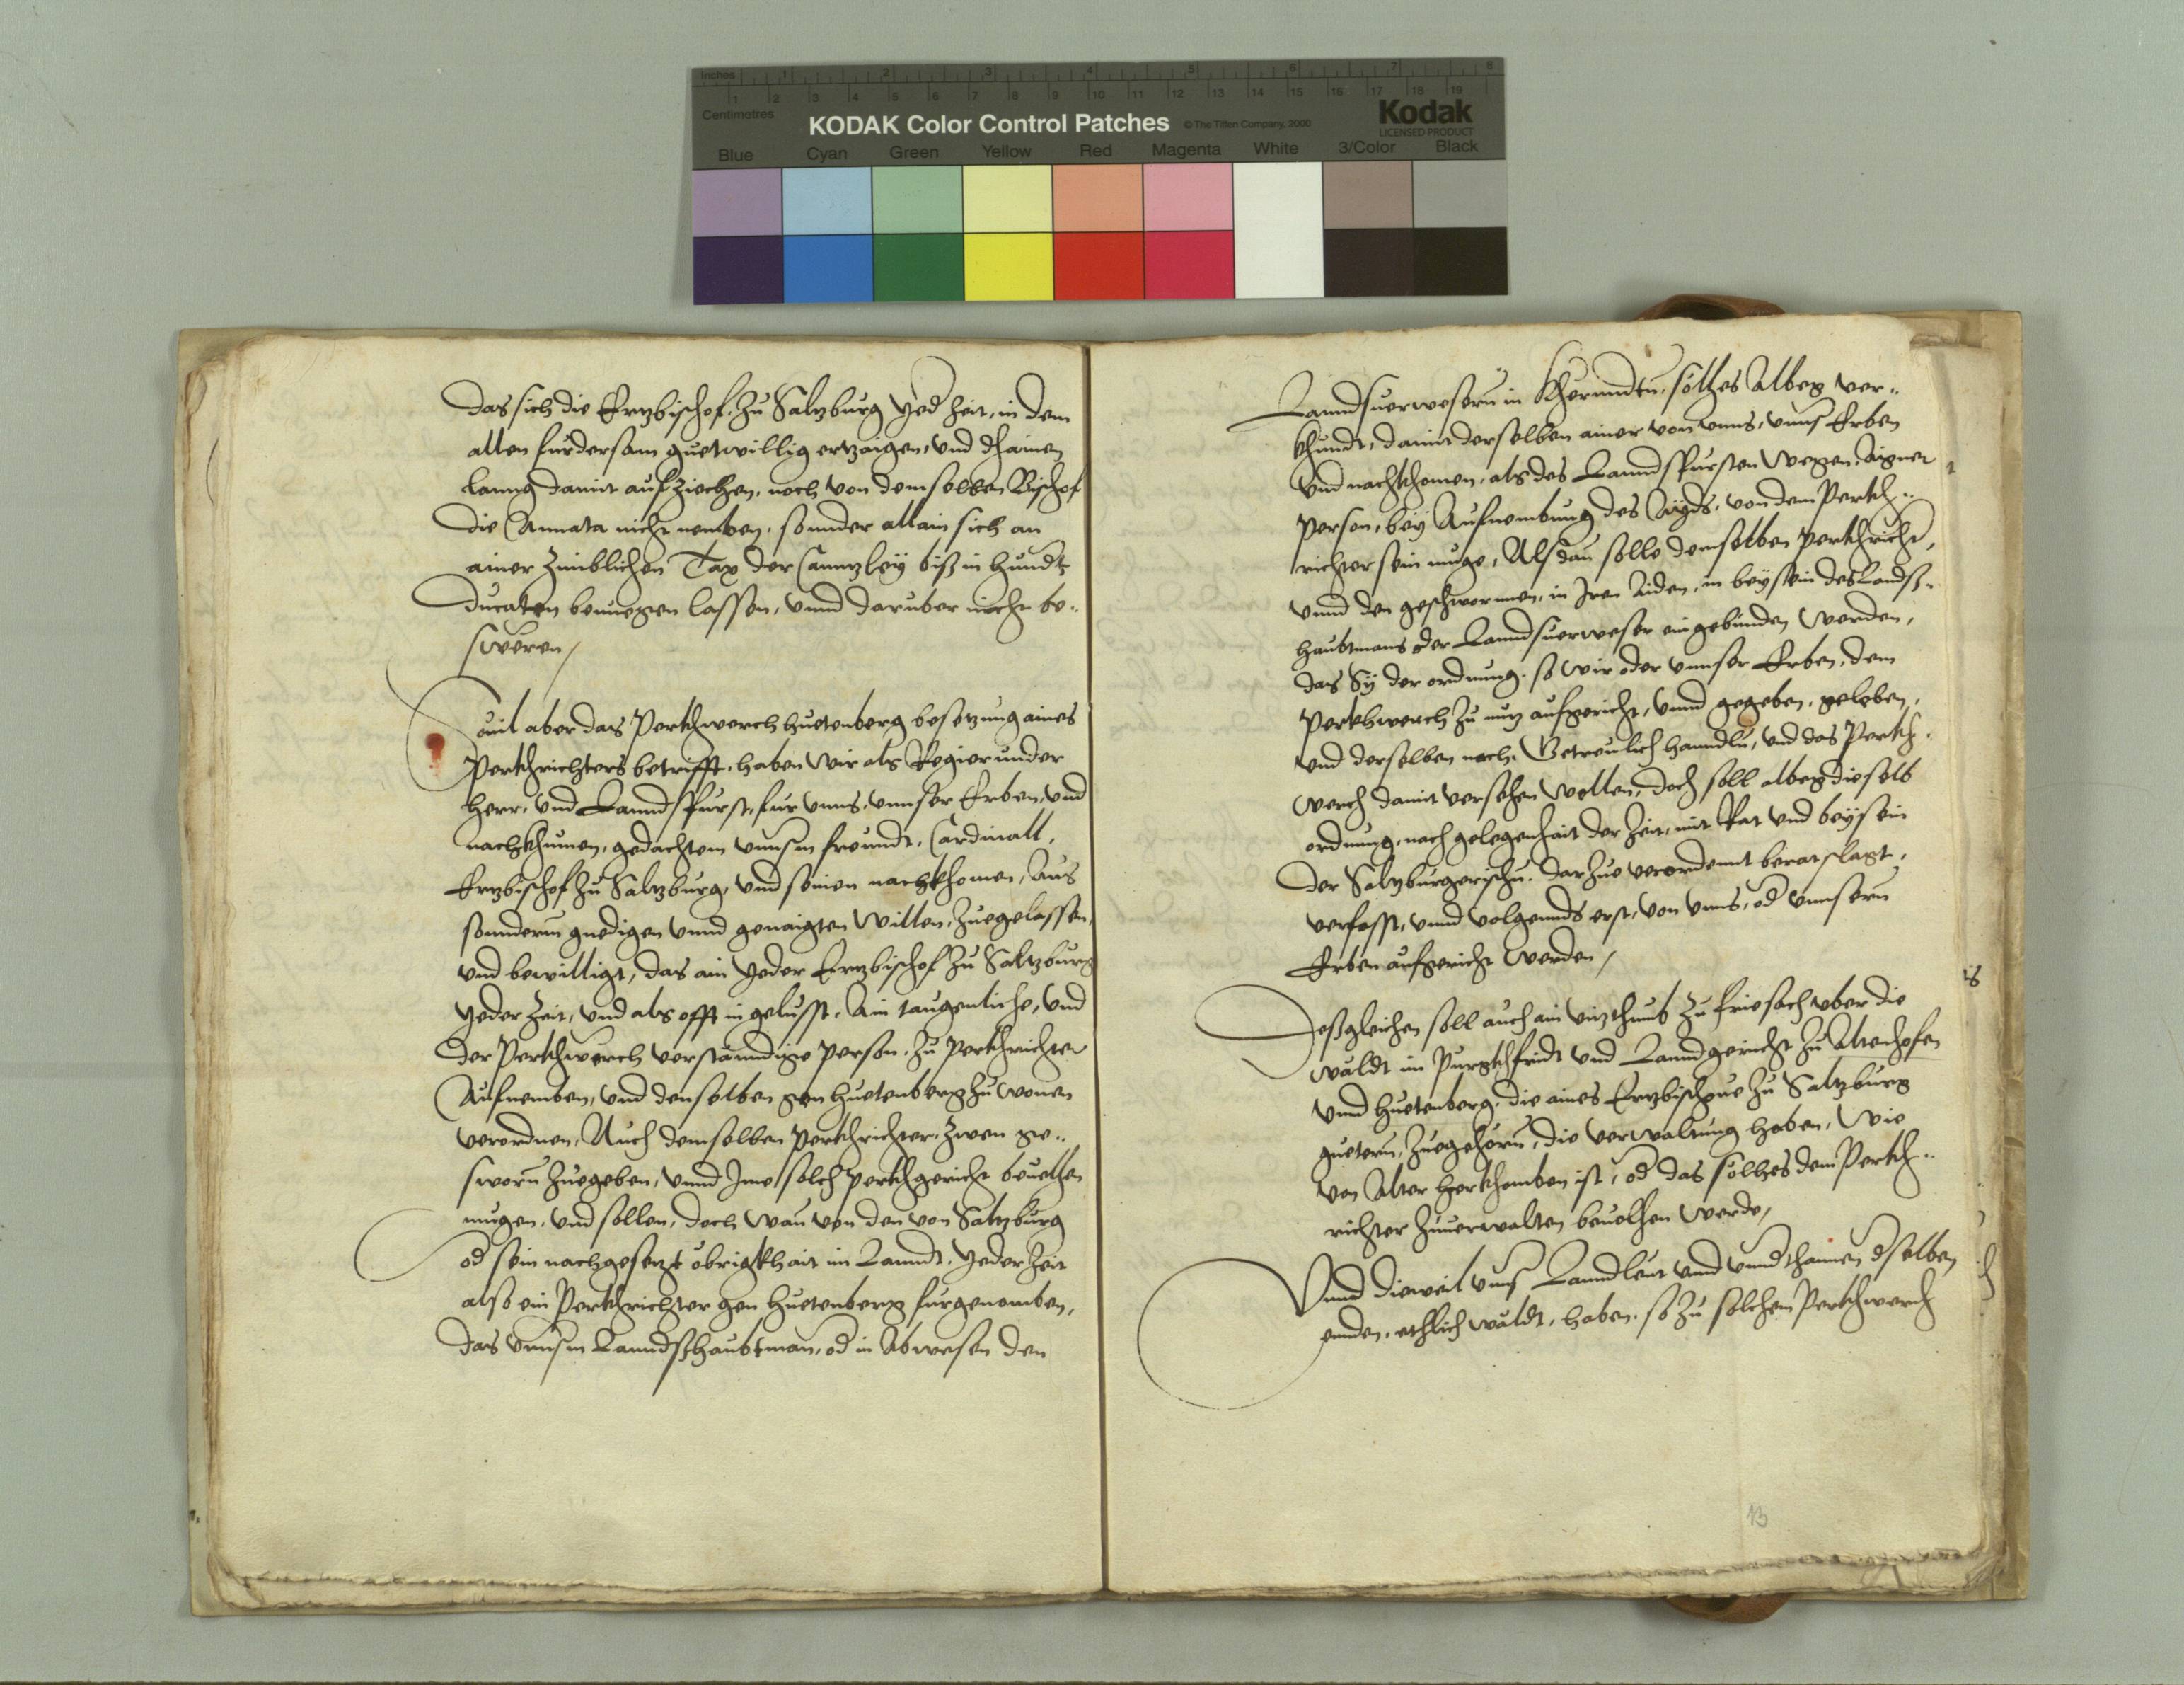 Inches 1 2 3 4 5 6 7 8
1 2 3 4 5 6 7 8 9 10 11 12 13 14 15 16 17 18 19
Centimetres
KODAK Color Control Patches © The Tiffen Company, 2000 Kodak
LICENSED PRODUCT
Blue Cyan Green Yellow Red Magenta White 3/Color Black
das sich die Ertzbischof, zu Saltzburg yed zeit, in dem
allen furdersam guetwillig ertzaigen, und dhainen
lanng damit aufziechen, noch von demselben Bischof
die Annata nicht nemben, sonnder allain sich an
ainer zimblichen Tax der Canntzley biß in hundt
ducaten benuegen lassen, unnd daruber nicht be¬
sweren /
Souil aber das Perkhwerch Huetenberg besetzung aines
Perkhrichters betrifft, haben wir als Regierunder
herr, und Lanndsfurst, fur unns, unnser Erben, und
nachkhumen, gedachtem unnsm freundt, Cardinall,
Ertzbischof zu Saltzburg, und seinen nachkhomen, Aus
sonndern gnedigen unnd genaigten Willen, zuegelassen,
und bewilligt, das ain yeder Ertzbischof zu Saltzburg
yeder Zeit, und als offt in gelusst, Ain taugenliche, und
der Perkhwerch verstanndige person, zu Perkhrichter
Aufnemben, und denselben gen Huetenberg zu wonen
verordnen, Auch demselben Perkhrichter, zwen ge¬
sworn zuegeben, unnd Ime solch perkhgericht beuelhen
mugen, und sollen, doch wan von den von Saltzburg
od sein nachgesetzt obrigkhait im Lanndt, yeder zeit
also ein Perkhrichter gen Huetenberg furgenomben,
das unnsm Lanndßhaubtman, od in Abwesen den
Lanndsuerwesern in Khernndtn, sollhes Albeg ver¬
khundt, damit derselben ainer von unns, unns Erben
und nachkhomen, als des Lanndsfursten wegen, Aigner
person, bey Aufnembung des Ayds, von dem Perkh¬
richter sein muge, Alsdan solle demselben perkhricht,
unnd den geschwornnen, in Iren Aiden, in beysein des Landß¬
haubtmans oder Lanndsuerweser eingebunden werden,
das Sy der ordnung, so wir oder unnser Erben, dem
Perkhwerch zu nutz aufgericht, unnd gegeben, geleben,
und derselben nach, Getreulich hanndln, und das Perkh¬
werch damit versehen wellen, doch soll albeg dieselb
ordnung, nach gelegenhait der Zeit, mit Rat und beysein
der Saltzburgerischn, darzue verordennt beratslagt,
verfasst, unnd volgennds erst, von unns, od unnsern
Erben aufgericht werden /
Deßgleichen soll auch ain vitzthumb zu friesach uber die
wäldt im Purgkhfridt und Lanndgericht zu Altenhofen
unnd Huetenberg, die aines Ertzbischoue zu Saltzburg
guetern, zuegehörn, die verwaltung haben, Wie
von Alter herkhomben ist, od das sollhes dem Perkh¬
richter zuuerwalten beuolhen werde,
Unnd dieweil unns Lanndleut unnd unndthainen dselben
ennden, ethlich wäldt, haben, so zu solchem Perkhwerch
13